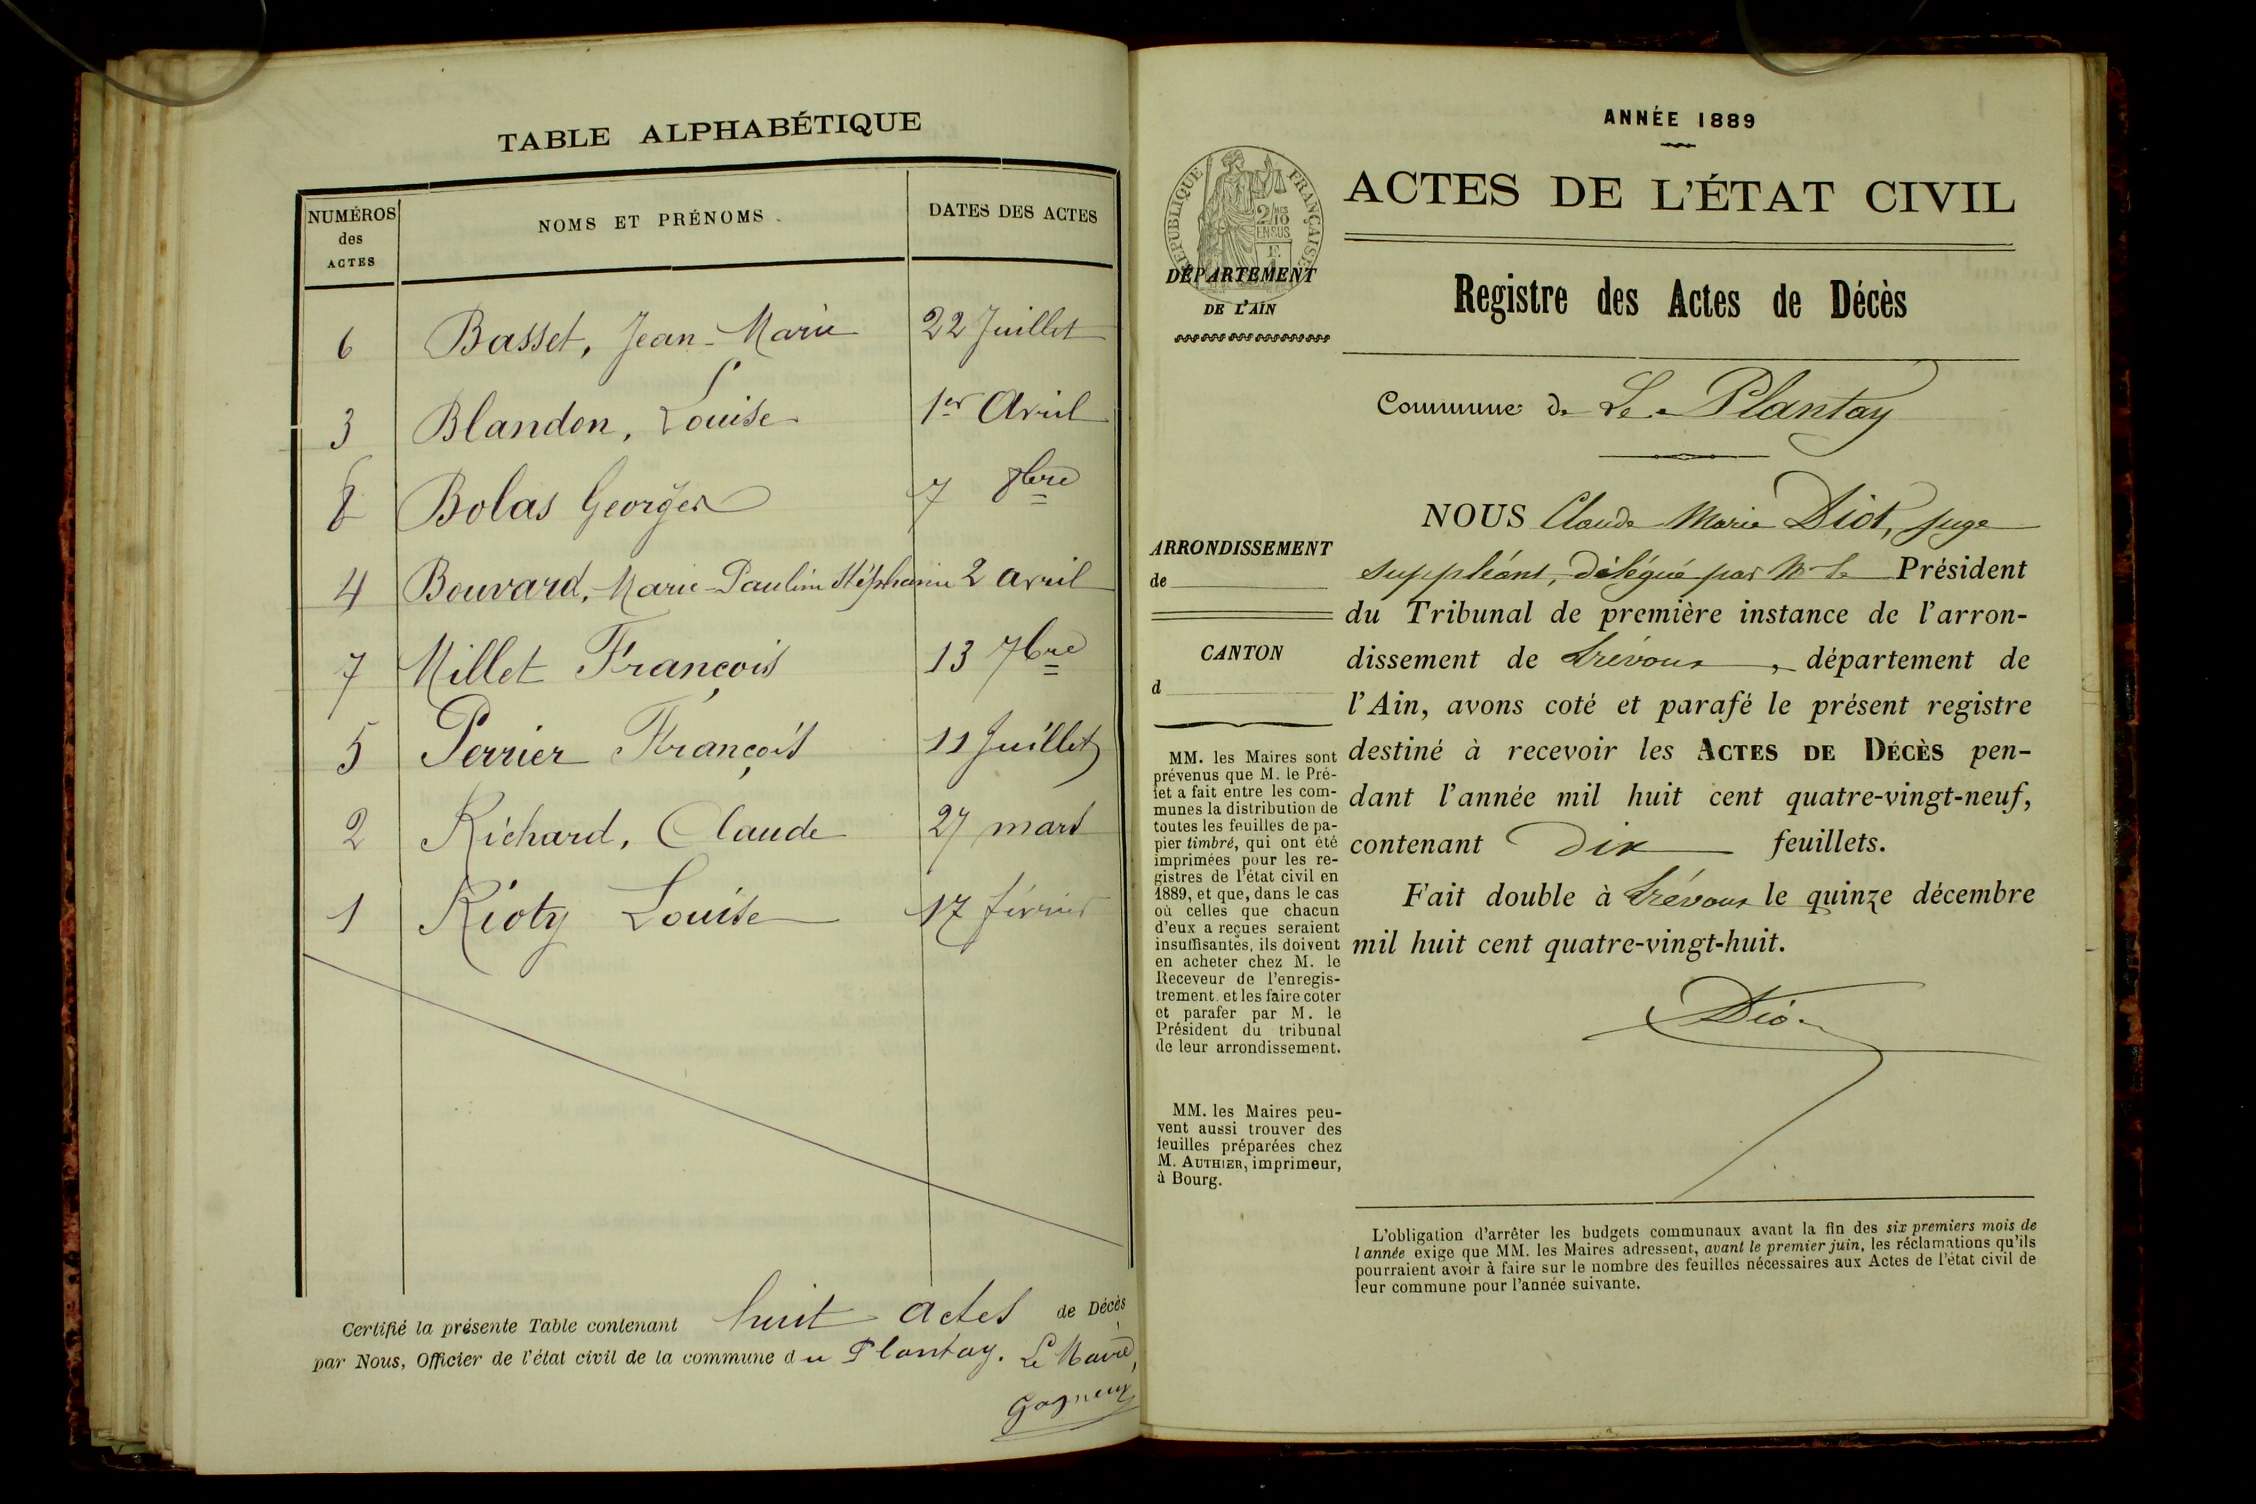 TABLE ALPHABÉTIQUE
NUMÉROS des ACTES
NOMS ET PRÉNOMS
DATES DES ACTES
6 Basset, Jean-Marie 22 Juillet
3 Blandon, Louise 1er Avril
8 Bolas Georges 7 8bre
4 Bouvard, Marie-Pauline Stéphanie 2 avril
7 Millet François 13 7bre
5 Perrier François 11 Juillet
2 Richard, Claude 27 mars
1 Rioty Louise 17 février
Certifié la présente Table contenant huit actes de Décès
par Nous, Officier de l'état civil de la commune du Plantay. Le Maire,
Gagneux
ANNÉE 1889
ACTES DE L'ÉTAT CIVIL
RÉPUBLIQUE FRANÇAISE
2/10
EN SUS
DÉPARTEMENT
DE L'AIN
Registre des Actes de Décès
Commune de Le Plantay
ARRONDISSEMENT
de
CANTON
d
MM. les Maires sont
prévenus que M. le Pré-
fet a fait entre les com-
munes la distribution de
toutes les feuilles de pa-
pier timbré, qui ont été
imprimées pour les re-
gistres de l'état civil en
1889, et que, dans le cas
où celles que chacun
d'eux a reçues seraient
insuffisantes, ils doivent
en acheter chez M. le
Receveur de l'enregis-
trement, et les faire coter
et parafer par M. le
Président du tribunal
de leur arrondissement.
MM. les Maires peu-
vent aussi trouver des
feuilles préparées chez
M. AUTHIER, imprimeur,
à Bourg.
NOUS Claude Marie Diot, juge
suppléant, délégué par Mr le Président
du Tribunal de première instance de l'arron-
dissement de Trévoux, département de
l'Ain, avons coté et parafé le présent registre
destiné à recevoir les ACTES DE DÉCÈS pen-
dant l'année mil huit cent quatre-vingt-neuf,
contenant dix feuillets.
Fait double à Trévoux le quinze décembre
mil huit cent quatre-vingt-huit.
Diot
L'obligation d'arrêter les budgets communaux avant la fin des six premiers mois de
l'année exige que MM. les Maires adressent, avant le premier juin, les réclamations qu'ils
pourraient avoir à faire sur le nombre des feuilles nécessaires aux Actes de l'état civil de
leur commune pour l'année suivante.